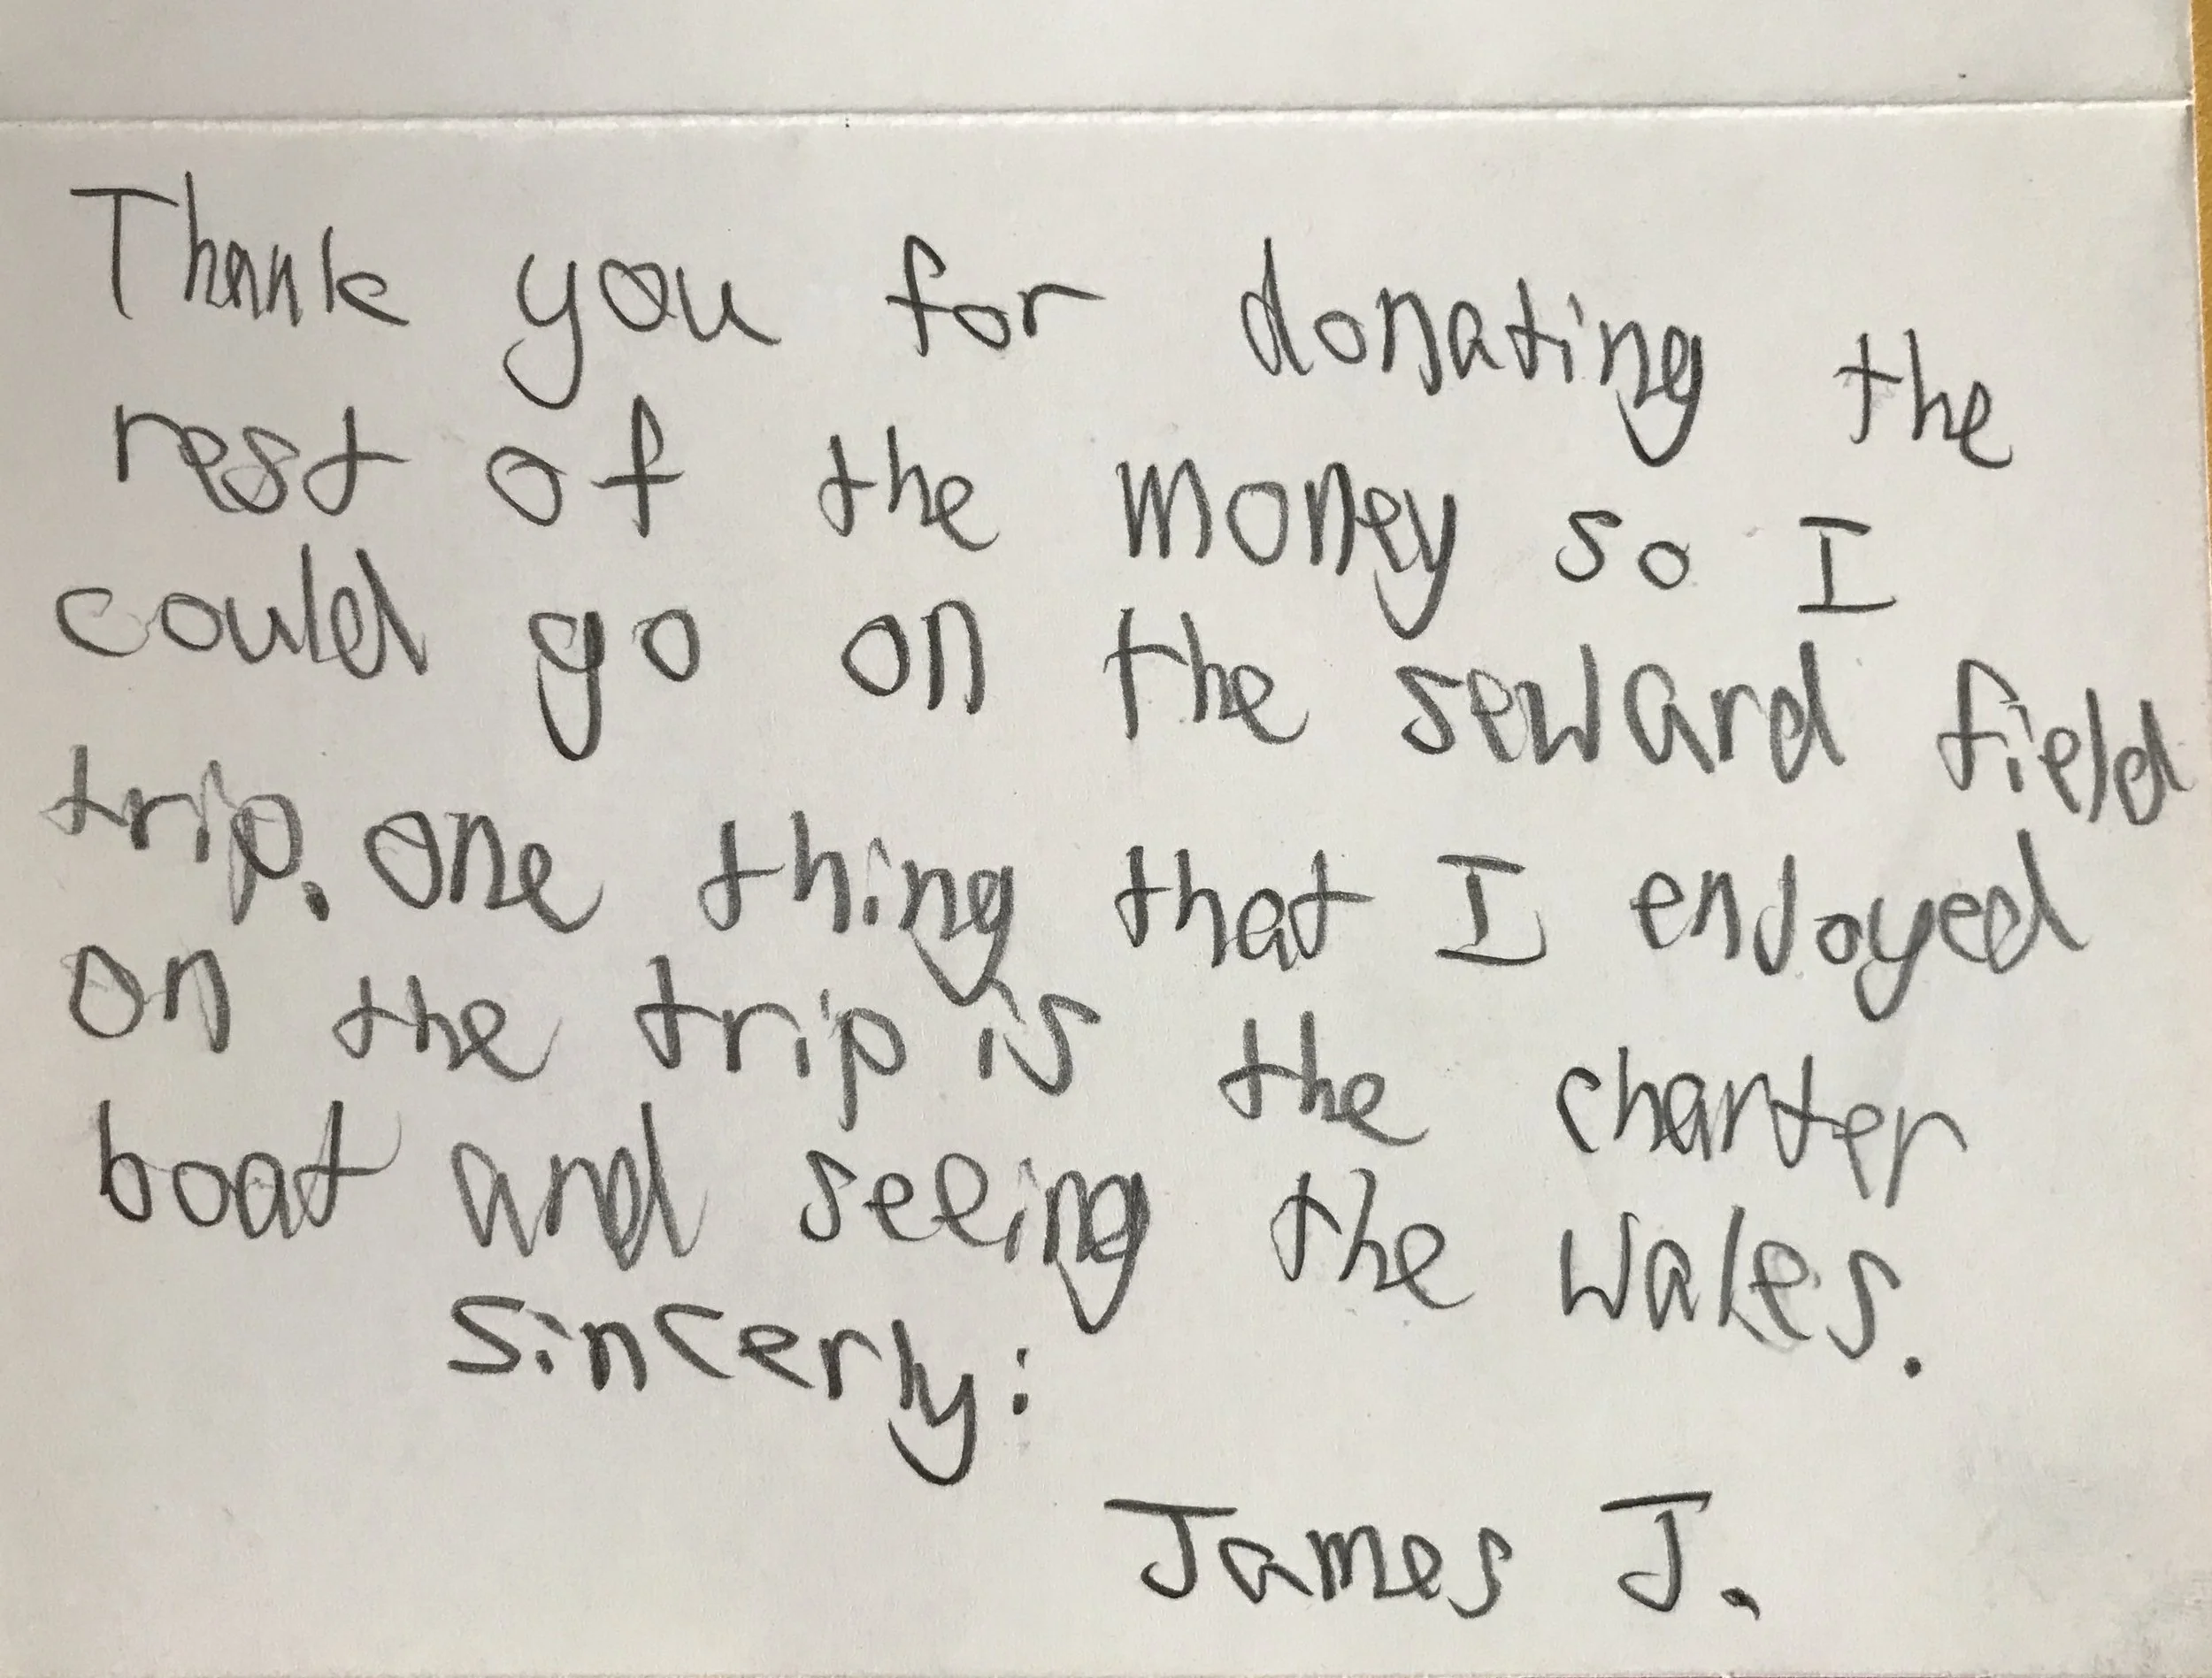 Thank you for donating the
rest of the money so I
could go on the seward field
trip. One thing that I enjoyed
on the trip is the charter
boat and seeing the wales.
Sincerly:
James J.